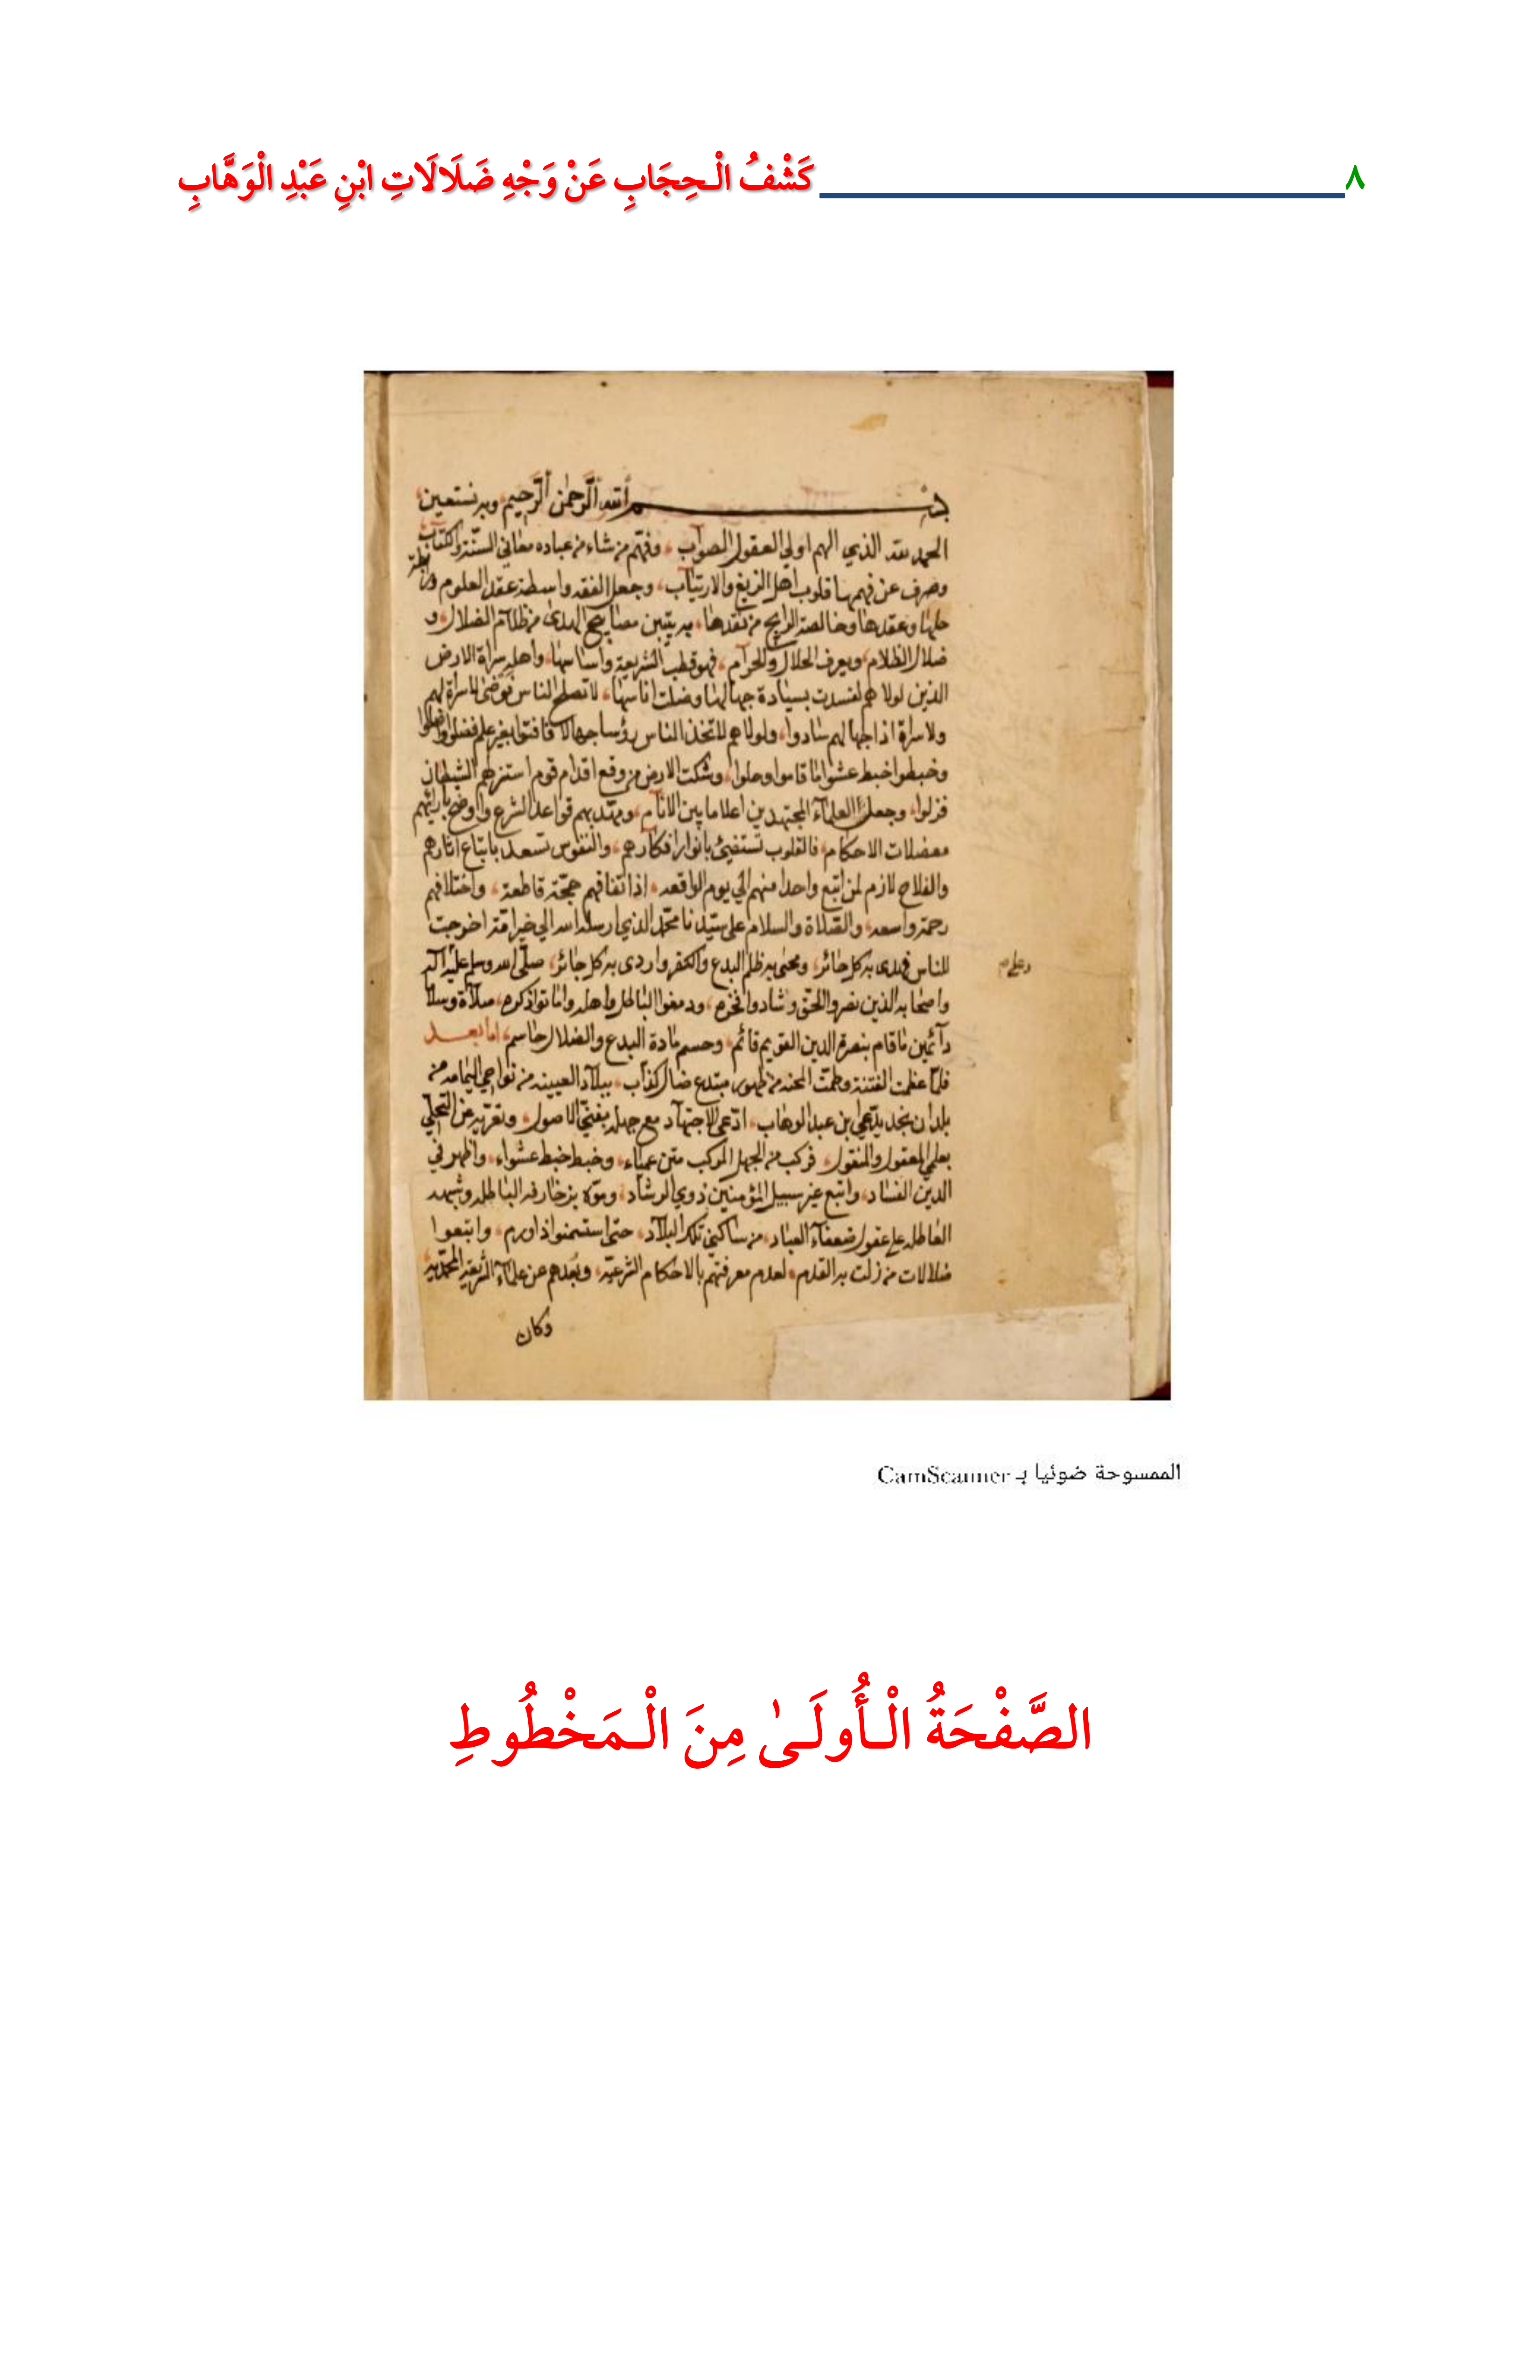 ٨ كَشْفُ الْـحِجَابِ عَنْ وَجْهِ ضَلَالَاتِ ابْنِ عَبْدِ الْوَهَّابِ
بسم الله الرحمن الرحيم وبه نستعين
الحمد لله الذي الهم اولي العقول الصواب وفهم من شاء من عباده معاني السنة والكتاب
وصرف عن فهمها قلوب اهل الزيغ والارتياب وجعل الفقه واسطة عقد العلوم
حلها وعقدها وخالصة الرابح من نقدها به يتبين مصابيح الهدى من ظلام الضلال و
ضلال الظلام ويعرف الحلال والحرام فهو قطب الشريعة واساسها واهله سراة الارض
الذين لولاهم لفسدت بسيادة جهالها وضلت اناسها لا تصلح الناس فوضى لا سراة لهم
ولا سراة اذا جهالهم سادوا ولولاهم لاتخذ الناس رؤسا جهالا فافتوا بغير علم فضلوا واضلوا
وخبطوا خبط عشوا ما قاموا وحلوا وشكت الارض من وقع اقدام قوم استزلهم الشيطان
فزلوا وجعل العلماء المجتهدين اعلاما بين الانام ومهد بهم قواعد الشرع واوضح بارائهم
معضلات الاحكام فالقلوب تستضيئ بانوار افكارهم والنفوس تسعد باتباع اثارهم
والفلاح لازم لمن اتبع واحدا منهم الي يوم الواقعه اذ اتفاقهم حجة قاطعة واختلافهم
رحمة واسعه والصلاة والسلام على سيدنا محمد الذي ارسله الله الي خير امة اخرجت
للناس فهدى به كل حائر ومحى به ظلم البدع والكفر واردى به كل جائر صلى الله وسلم عليه
وعلى
واصحابه الذين نصروا الحق وشادوا ودمغوا الباطل واهله واماتوا ذكره صلاة وسلاما
دائمين ما قام بنصرة الدين القويم قائم وحسم مادة البدع والضلال حاسم اما بعد
فلما عظمت الفتنة وطمت المحنه من ظهور مبتدع ضال كذاب ببلاد العيينه من نواحي اليمامه من
بلدان نجد يدعى بن عبد الوهاب ادعى الاجتهاد مع جهله بفني الاصول وتعريه عن التحلي
بعلمي المعقول والمنقول فركب من الجهل المركب متن عمياء وخبط خبط عشواء واظهر في
الدين الفساد واتبع غير سبيل المؤمنين ذوي الرشاد وموه بزخارفه الباطله وشبهه
العاطله على عقول ضعفاء العباد من ساكني تلك البلاد حتى استسمنوا ذا ورم واتبعوا
ضلالات من زلت به القدم لعدم معرفتهم بالاحكام الشرعيه وبعدهم عن علماء الشريعه المحمديه
وكان
الممسوحة ضوئيا بـ CamScanner
الصَّفْحَةُ الْـأُولَـىٰ مِنَ الْـمَخْطُوطِ